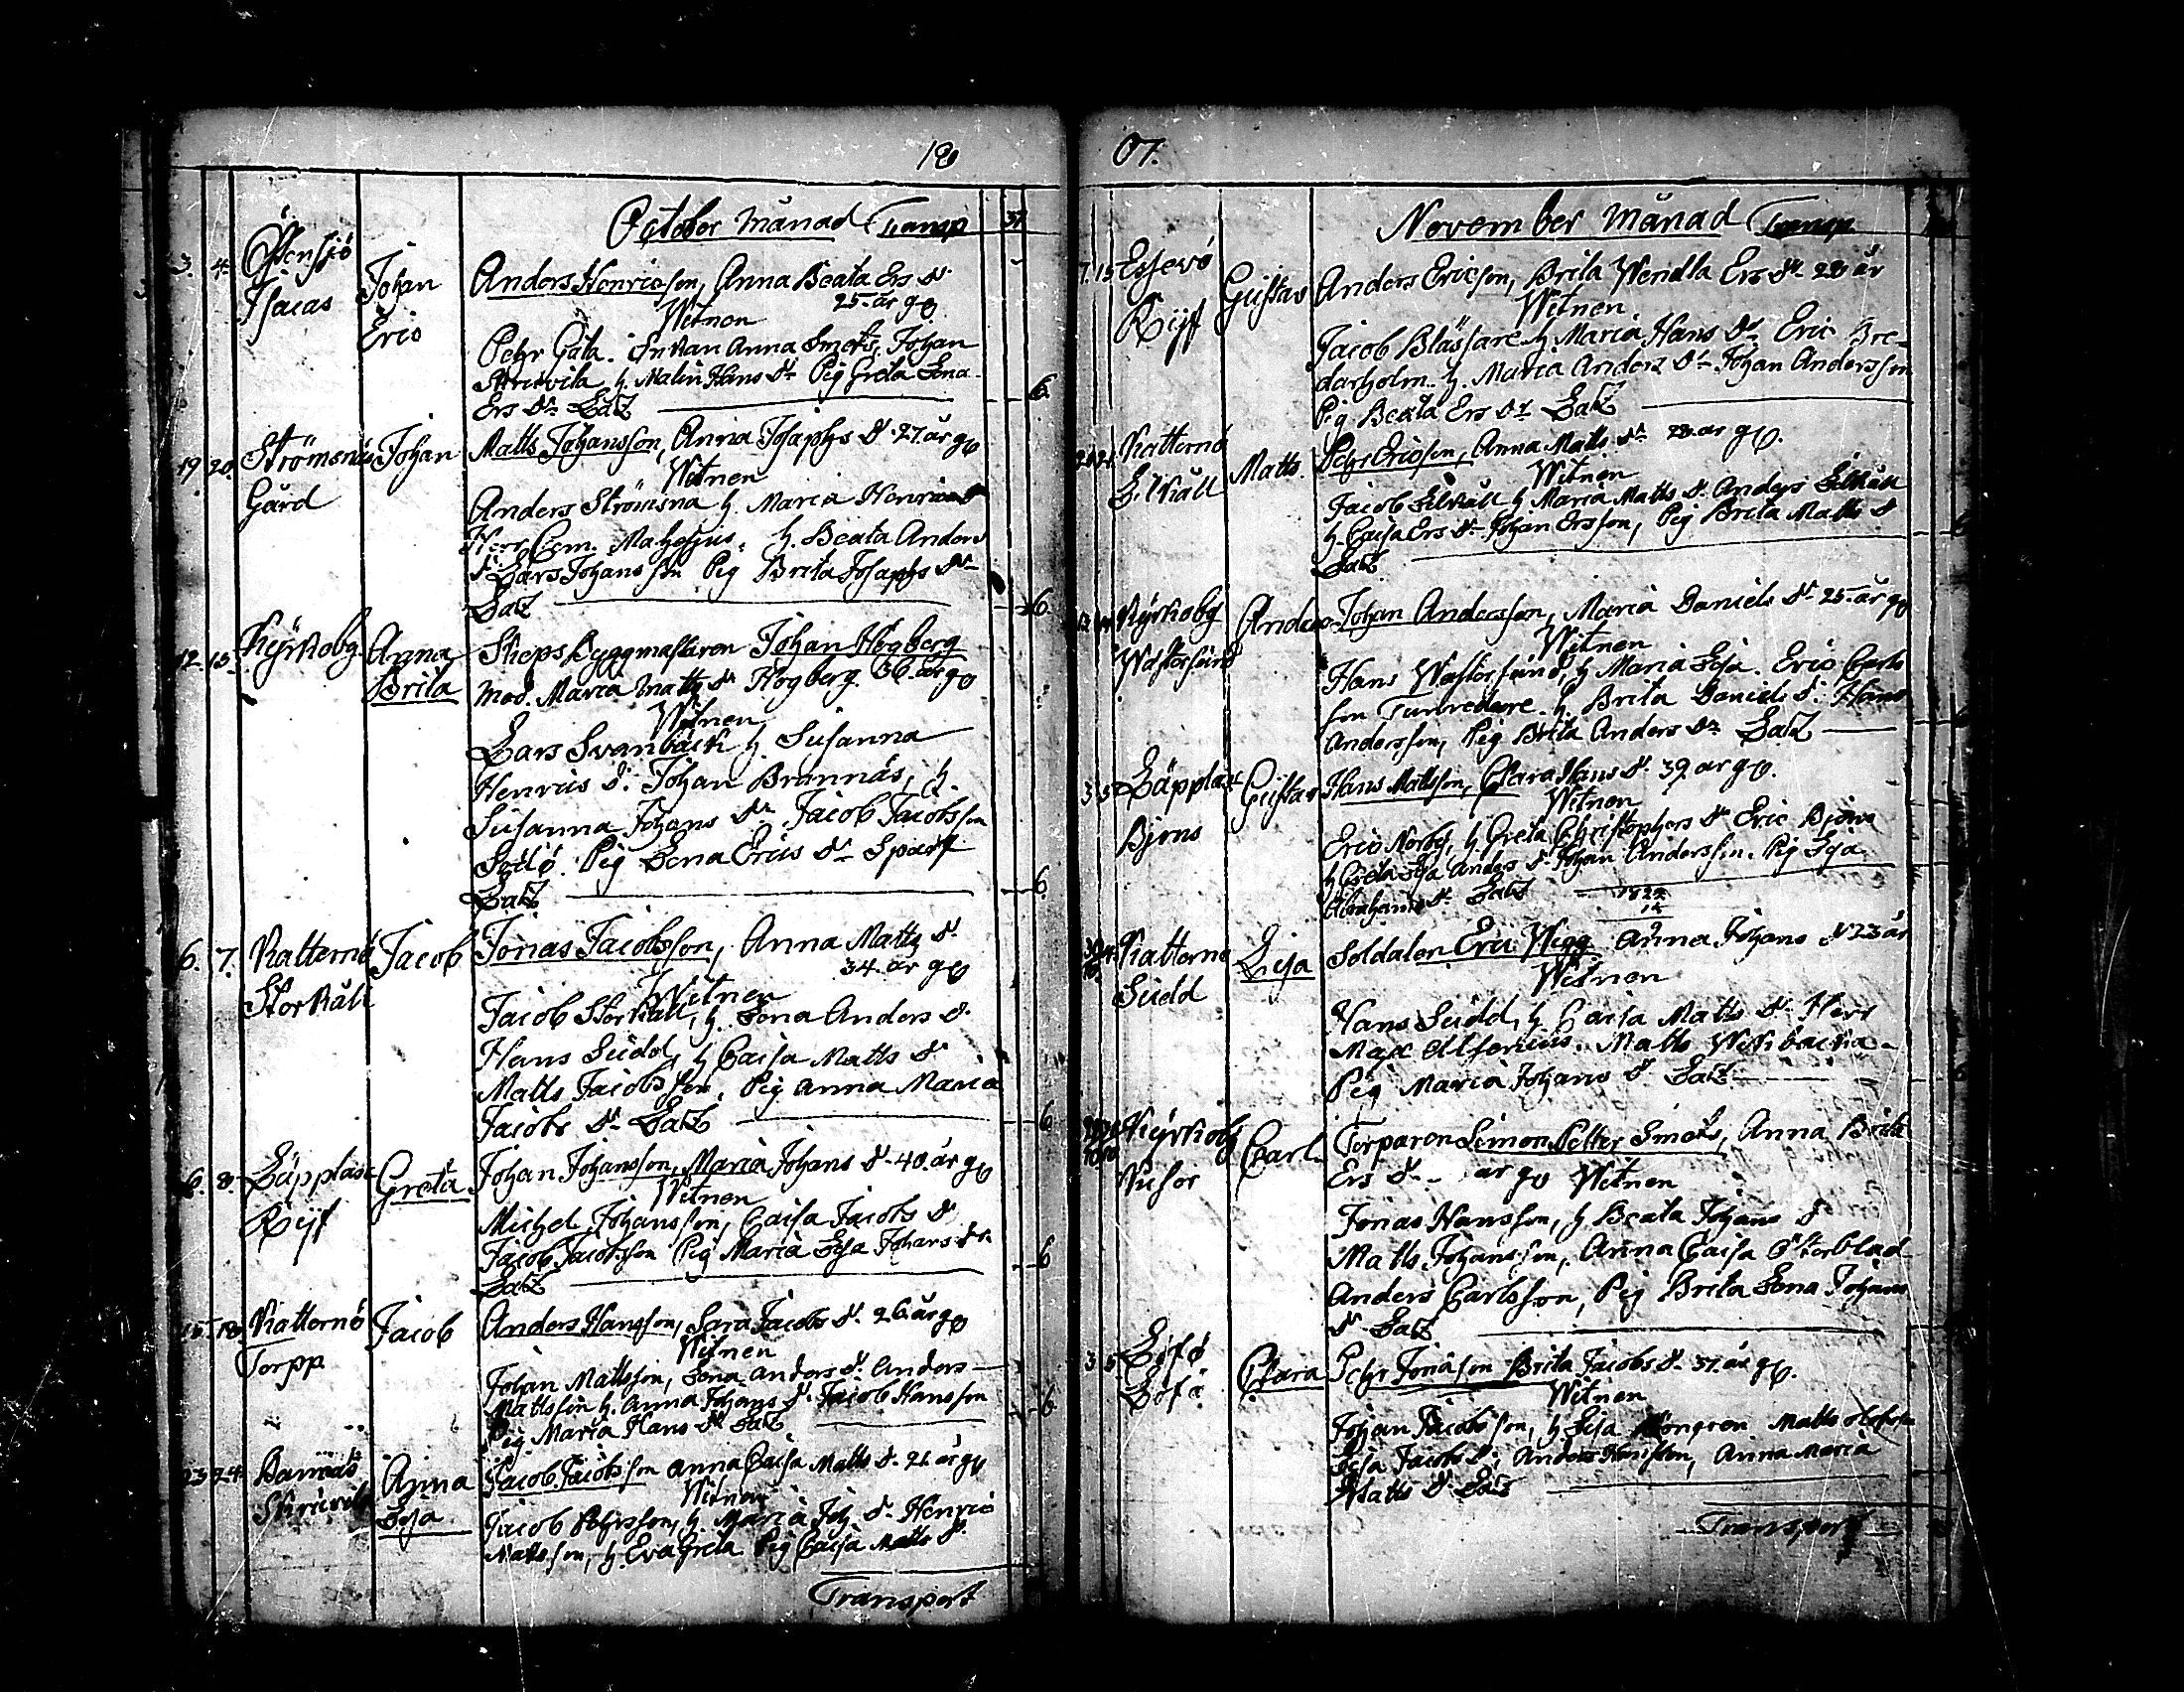 18
October månad Transp 37
3. 4. Öfensiö Isacas Johan Eric
Anders Henricsson, Anna Beata Ers dr
25. år g.
Witnen
Pehr Gata. Enkan Anna Smeds, Johan
h. Malin Hans dr Pig Greta Lena
Ers dr Latz 6.
19 20 Strömsnäs Gård Johan
Matts Johansson, Anna Josephs d. 27. år g.
Witnen
Anders Strömsna h. Maria Henrics dr
Herr Com. h. Beata Anders
d. Lars Johansson Pig Brita Josephs dr
Latz 6.
12. 13. Kyrkobg Anna Brita
Skepsbyggmastaren Johan Högberg
Mod. Maria Matts dr Högberg. 36. år g.
Witnen
Lars Svanbäck h. Susanna
Henrics d. Johan Brännäs, h.
Susanna Johans dr Jacob Jacobsson
Pig Lena Erics dr Sparf
Latz 6.
6. 7. Katternö Storkåll Jacob
Jonas Jacobsson, Anna Matts d.
34. år g.
Witnen
Jacob Storkåll, h. Lena Anders d.
Hans Sudd, h. Caisa Matts d.
Matts Jacobsson. Pig Anna Maria
Jacobs dr Latz 6
6. 8. Läpplax Reijf Greta
Johan Johansson, Maria Johans d. 40. år g.
Witnen
Michel Johansson, Caisa Jacobs d.
Jacob Jacobsson Pig Maria Lisa Johans dr
Latz 6
15. 18. Katternö Torpp Jacob
Anders Hansson, Sara Jacobs d. 26 år g.
Witnen
Johan Mattsson, Lena Anders d. Anders
Mattsson h. Anna Johans d. Jacob Hansson
Pig Maria Hans dr Latz 6
23 24 Bännäs Anna Lisa
Jacob Jacobsson Anna Caisa Matts d. 21 år g.
Witnen
Jacob Pehrsson, h. Maria Joh. d. Henric
Mattsson, h. Eva Greta Pig Caisa Matts d.
Transport
07.
November månad Transp
7. 15 Essevö Reijf Gustav
Anders Ericson, Brita Wendla Ers dr 28 år
Witnen
Jacob Blåssare h. Maria Hans dr Eric Bre-
darholm h. Maria Anders dr Johan Andersson
Pig Beata Ers dr Latz
Katternö Matts
Pehr Ericson, Anna Matts dr 28. år g.
Witnen
Jacob Lillkåll h. Maria Matts d. Anders Lillkåll
h. Caisa Ers dr Johan Ersson, Pig Brita Matts d
Latz 6
Kyrkobg Anders
Johan Andersson, Maria Daniels dr 25. år g.
Witnen
Hans h. Maria Lisa. Eric Carls
son Tunnredare. h. Brita Daniels d. Hans
Andersson, Pig Brita Anders dr Latz
3 5 Läpplax Bjons Gustav
Hans Mattsson, Clara Hans d. 39 år g.
Witnen
Eric Norby, h. Greta Christophers dr Eric Bjons
h. Greta Lisa Anders d. Johan Andersson. Pig Lisa
Abrahams dr Latz
Katternö Sudd Lisa
Soldaten Eric Wigg Anna Johans d 23 år
Witnen
Hans Sudd, h. Caisa Matts dr Herr
Matts
Pig Maria Johans d. Latz 6
Kyrkobg Carl
Torparen Simon Petter Smeds, Anna Brita
Ers d. år g. Witnen
Jonas Hansson, h. Beata Johans d
Matts Johansson, Anna Caisa Österblad
Anders Carlsson, Pig Brita Lena Johans
dr Latz
3 5 Löfö Löfö Clara
Pehr Jonasson Brita Jacobs d. 37. år g.
Witnen
Johan Jacobsson, h. Lisa Matts
Lisa Jacobs d. Anders Hansson, Anna Maria
Matts d. Latz
Transport